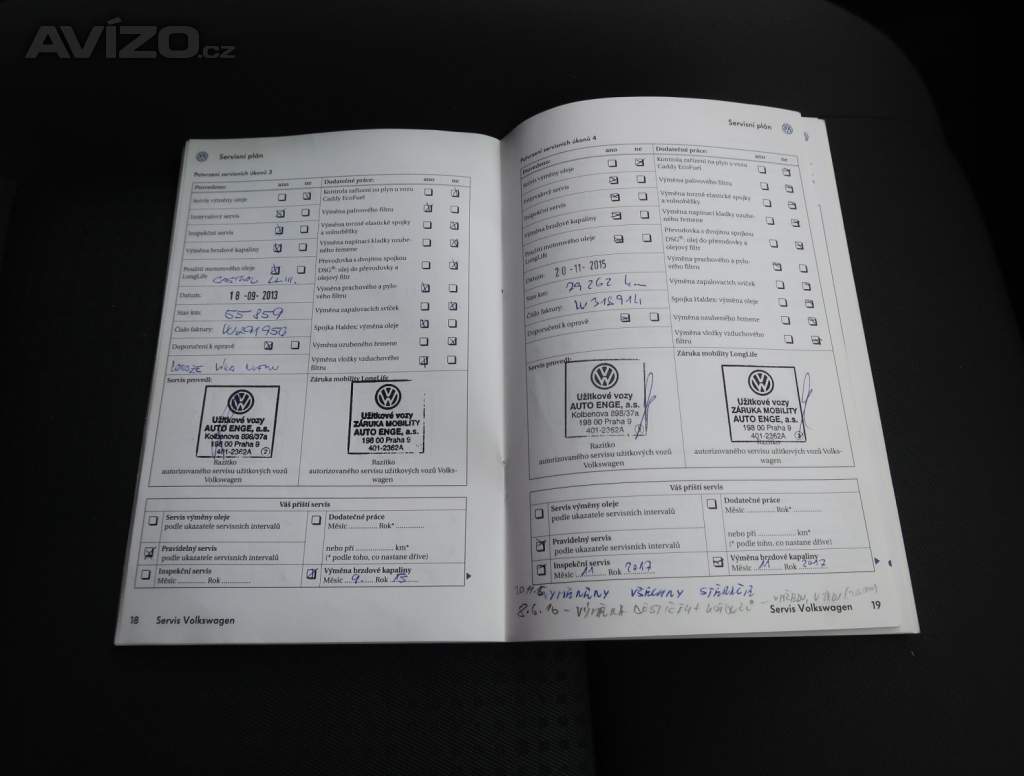 AVÍZO.cz
Servisní plán
Potvrzení servisních úkonů 3
Provedeno: ano ne Dodatečné práce: ano ne
Servis výměny oleje Kontrola zařízení na plyn u vozu
Caddy EcoFuel
Intervalový servis Výměna palivového filtru
Inspekční servis Výměna torzně elastické spojky
a volnoběžky
Výměna brzdové kapaliny Výměna napínací kladky ozube-
ného řemene
Použití motorového oleje
LongLife
Převodovka s dvojitou spojkou
DSG®: olej do převodovky a
olejový filtr
Datum: 18 -09- 2013 Výměna prachového a pylo-
vého filtru
Stav km: 55 859 Výměna zapalovacích svíček
Číslo faktury: Spojka Haldex: výměna oleje
Doporučení k opravě Výměna ozubeného řemene
Výměna vložky vzduchového
filtru
Servis provedl: Záruka mobility LongLife
Užitkové vozy
AUTO ENGE, a.s.
Kolbenova 898/37a
198 00 Praha 9
401-2362A
Razítko
autorizovaného servisu užitkových vozů
Volkswagen
Užitkové vozy
ZÁRUKA MOBILITY
AUTO ENGE, a.s.
198 00 Praha 9
401-2362A
Razítko
autorizovaného servisu užitkových vozů Volks-
wagen
Váš příští servis
Servis výměny oleje
podle ukazatele servisních intervalů
Pravidelný servis
podle ukazatele servisních intervalů
Inspekční servis
Měsíc ............ Rok ...............
Dodatečné práce
Měsíc ............ Rok* ...............
nebo při .................... km*
(* podle toho, co nastane dříve)
Výměna brzdové kapaliny
Měsíc 9 Rok 15
18 Servis Volkswagen
Servisní plán
Potvrzení servisních úkonů 4
Provedeno: ano ne Dodatečné práce: ano ne
Servis výměny oleje Kontrola zařízení na plyn u vozu
Caddy EcoFuel
Intervalový servis Výměna palivového filtru
Inspekční servis Výměna torzně elastické spojky
a volnoběžky
Výměna brzdové kapaliny Výměna napínací kladky ozube-
ného řemene
Použití motorového oleje
LongLife
Převodovka s dvojitou spojkou
DSG®: olej do převodovky a
olejový filtr
Datum: 20 -11- 2015 Výměna prachového a pylo-
vého filtru
Stav km: 79 262 km Výměna zapalovacích svíček
Číslo faktury: W318914 Spojka Haldex: výměna oleje
Doporučení k opravě Výměna ozubeného řemene
Výměna vložky vzduchového
filtru
Servis provedl: Záruka mobility LongLife
Užitkové vozy
AUTO ENGE, a.s.
Kolbenova 898/37a
198 00 Praha 9
401-2362A
Razítko
autorizovaného servisu užitkových vozů
Volkswagen
Užitkové vozy
ZÁRUKA MOBILITY
AUTO ENGE, a.s.
198 00 Praha 9
401-2362A
Razítko
autorizovaného servisu užitkových vozů Volks-
wagen
Váš příští servis
Servis výměny oleje
podle ukazatele servisních intervalů
Pravidelný servis
podle ukazatele servisních intervalů
Inspekční servis
Měsíc 11 Rok 2017
Dodatečné práce
Měsíc ............ Rok* ...............
nebo při .................... km*
(* podle toho, co nastane dříve)
Výměna brzdové kapaliny
Měsíc 11 Rok 2017
VYMĚNĚNY VŠECHNY STĚRAČE
8.6.16 - VÝMĚNA DESTIČEK
Servis Volkswagen 19